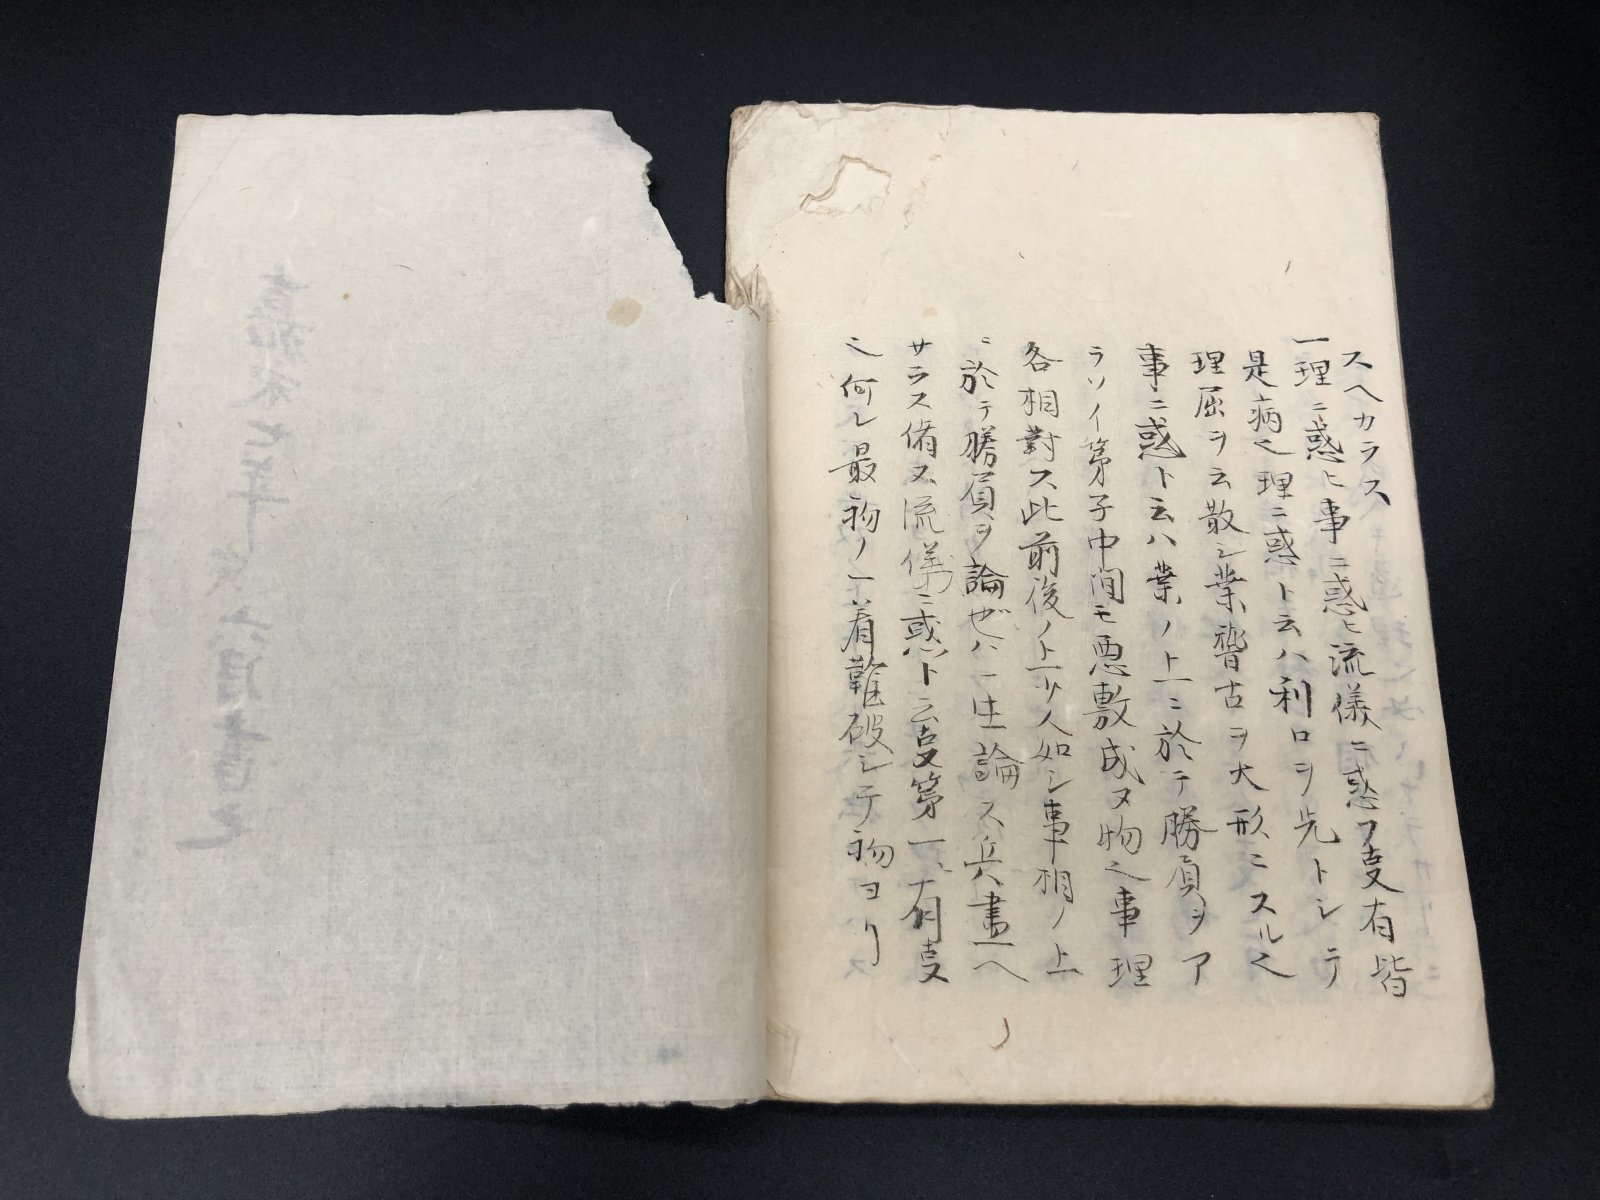 スヘカラス
一理ニ惑ヒ事ニ惑ヒ流儀ニ惑フ支有皆
是病也理ニ惑ト云ハ利口ヲ先トシテ
理屈ヲ云散シ業稽古ヲ大形ニスル也
事ニ惑ト云ハ業ノ上ニ於テ勝負ヲア
ラソイ第子中間モ悪敷成又物之事理
各相對ス此前後ノト少人如シ事相ノ上
ニ於テ勝負ヲ論ゼハ一生論ス兵書一ヘ
サラス偖又流儀ニ惑ト云支第一有支
之何レ最初ノ一着難破シテ初ヨリ
嘉永七年 月書之